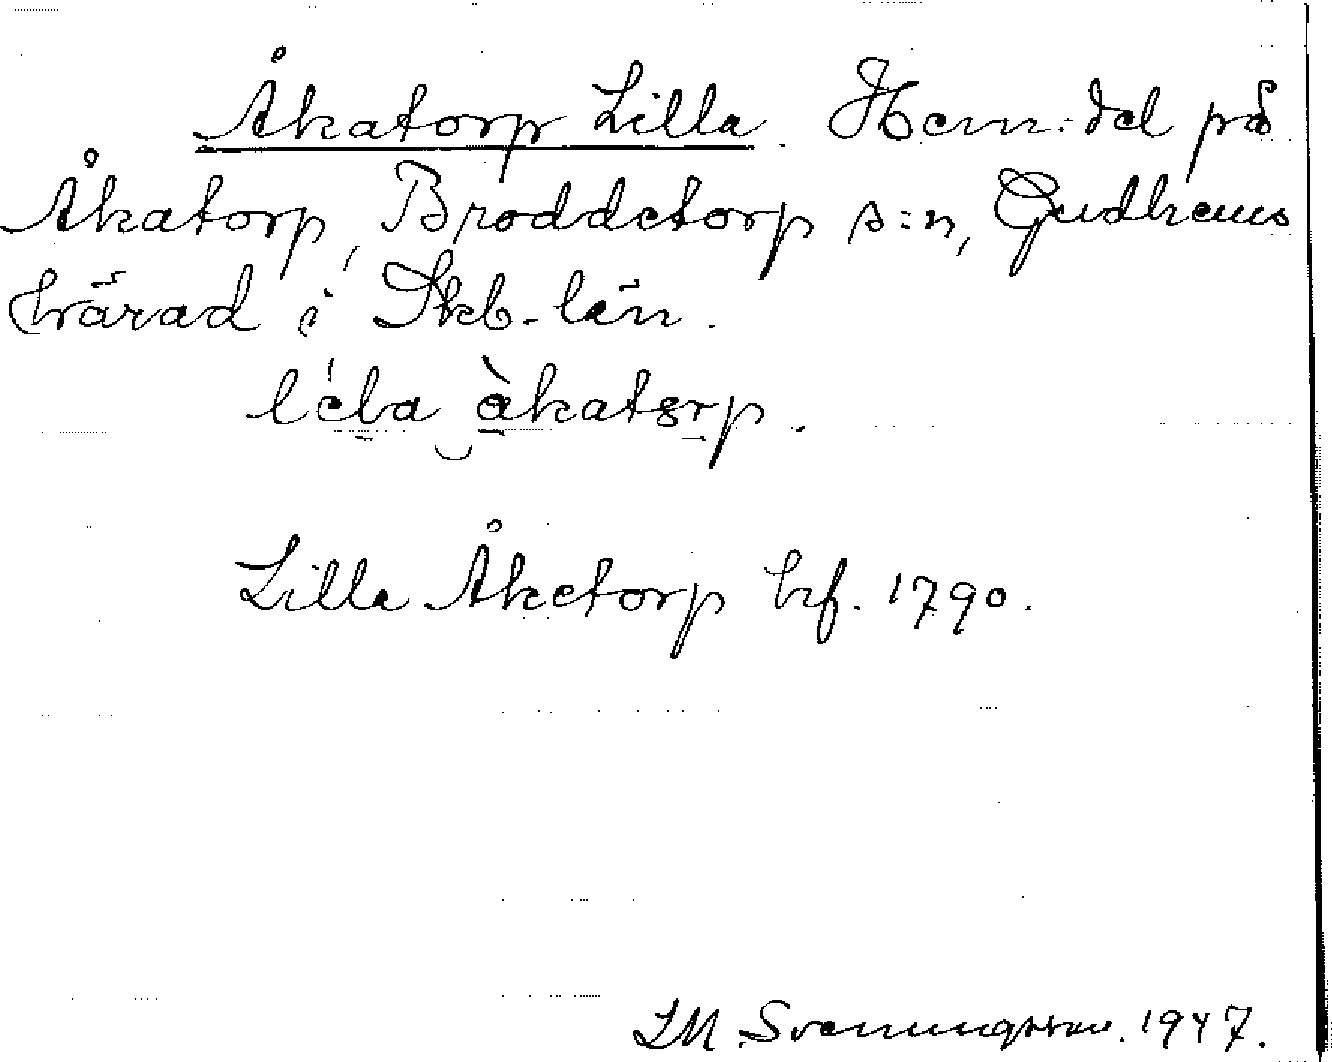 Åkatorp Lilla. Hem:del på
Åkatorp, Broddetorp s:n, Gudhems
härad i Skb. län.
Lilla Åketorp hf. 1790.
LM Svenungsson. 1947.